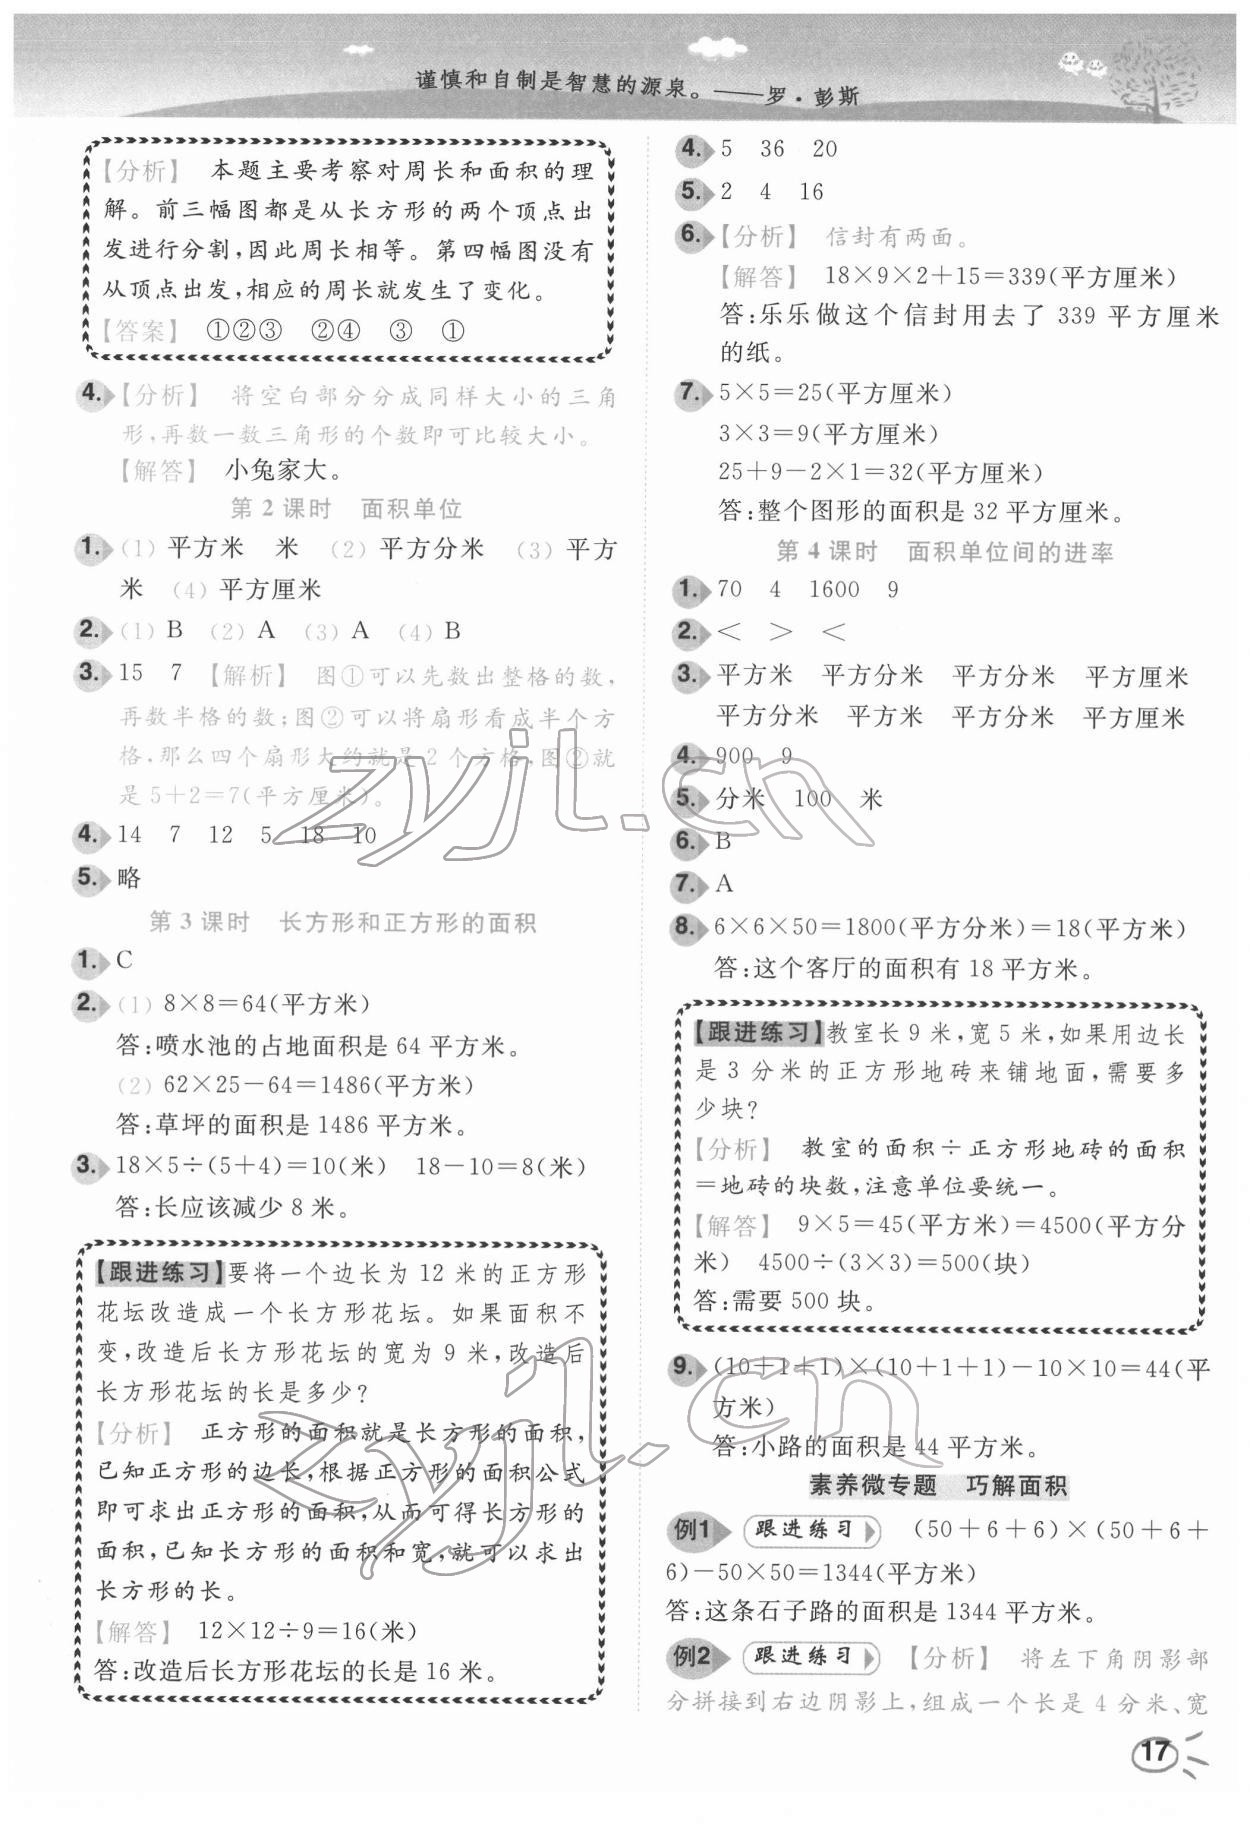 谨慎和自制是智慧的源泉。——罗·彭斯
【分析】 本题主要考察对周长和面积的理
解。前三幅图都是从长方形的两个顶点出
发进行分割,因此周长相等。第四幅图没有
从顶点出发,相应的周长就发生了变化。
【答案】 ①②③ ②④ ③ ①
4. 【分析】 将空白部分分成同样大小的三角
形,再数一数三角形的个数即可比较大小。
【解答】 小兔家大。
第 2 课时 面积单位
1. (1) 平方米 米 (2) 平方分米 (3) 平方
米 (4) 平方厘米
2. (1) B (2) A (3) A (4) B
3. 15 7 【解析】 图①可以先数出整格的数,
再数半格的数;图②可以将扇形看成半个方
格,那么四个扇形大约就是 2 个方格,图②就
是 5+2=7(平方厘米)。
4. 14 7 12 5 18 10
5. 略
第 3 课时 长方形和正方形的面积
1. C
2. (1) 8×8=64(平方米)
答:喷水池的占地面积是 64 平方米。
(2) 62×25-64=1486(平方米)
答:草坪的面积是 1486 平方米。
3. 18×5÷(5+4)=10(米) 18-10=8(米)
答:长应该减少 8 米。
【跟进练习】要将一个边长为 12 米的正方形
花坛改造成一个长方形花坛。如果面积不
变,改造后长方形花坛的宽为 9 米,改造后
长方形花坛的长是多少?
【分析】 正方形的面积就是长方形的面积,
已知正方形的边长,根据正方形的面积公式
即可求出正方形的面积,从而可得长方形的
面积,已知长方形的面积和宽,就可以求出
长方形的长。
【解答】 12×12÷9=16(米)
答:改造后长方形花坛的长是 16 米。
4. 5 36 20
5. 2 4 16
6. 【分析】 信封有两面。
【解答】 18×9×2+15=339(平方厘米)
答:乐乐做这个信封用去了 339 平方厘米
的纸。
7. 5×5=25(平方厘米)
3×3=9(平方厘米)
25+9-2×1=32(平方厘米)
答:整个图形的面积是 32 平方厘米。
第 4 课时 面积单位间的进率
1. 70 4 1600 9
2. < > <
3. 平方米 平方分米 平方分米 平方厘米
平方分米 平方米 平方分米 平方厘米
4. 900 9
5. 分米 100 米
6. B
7. A
8. 6×6×50=1800(平方分米)=18(平方米)
答:这个客厅的面积有 18 平方米。
【跟进练习】教室长 9 米,宽 5 米,如果用边长
是 3 分米的正方形地砖来铺地面,需要多
少块?
【分析】 教室的面积÷正方形地砖的面积
=地砖的块数,注意单位要统一。
【解答】 9×5=45(平方米)=4500(平方分
米) 4500÷(3×3)=500(块)
答:需要 500 块。
9. (10+1+1)×(10+1+1)-10×10=44(平
方米)
答:小路的面积是 44 平方米。
素养微专题 巧解面积
例1 跟进练习 (50+6+6)×(50+6+
6)-50×50=1344(平方米)
答:这条石子路的面积是 1344 平方米。
例2 跟进练习 【分析】 将左下角阴影部
分拼接到右边阴影上,组成一个长是 4 分米、宽
17
zyjl.cn
zyjl.cn